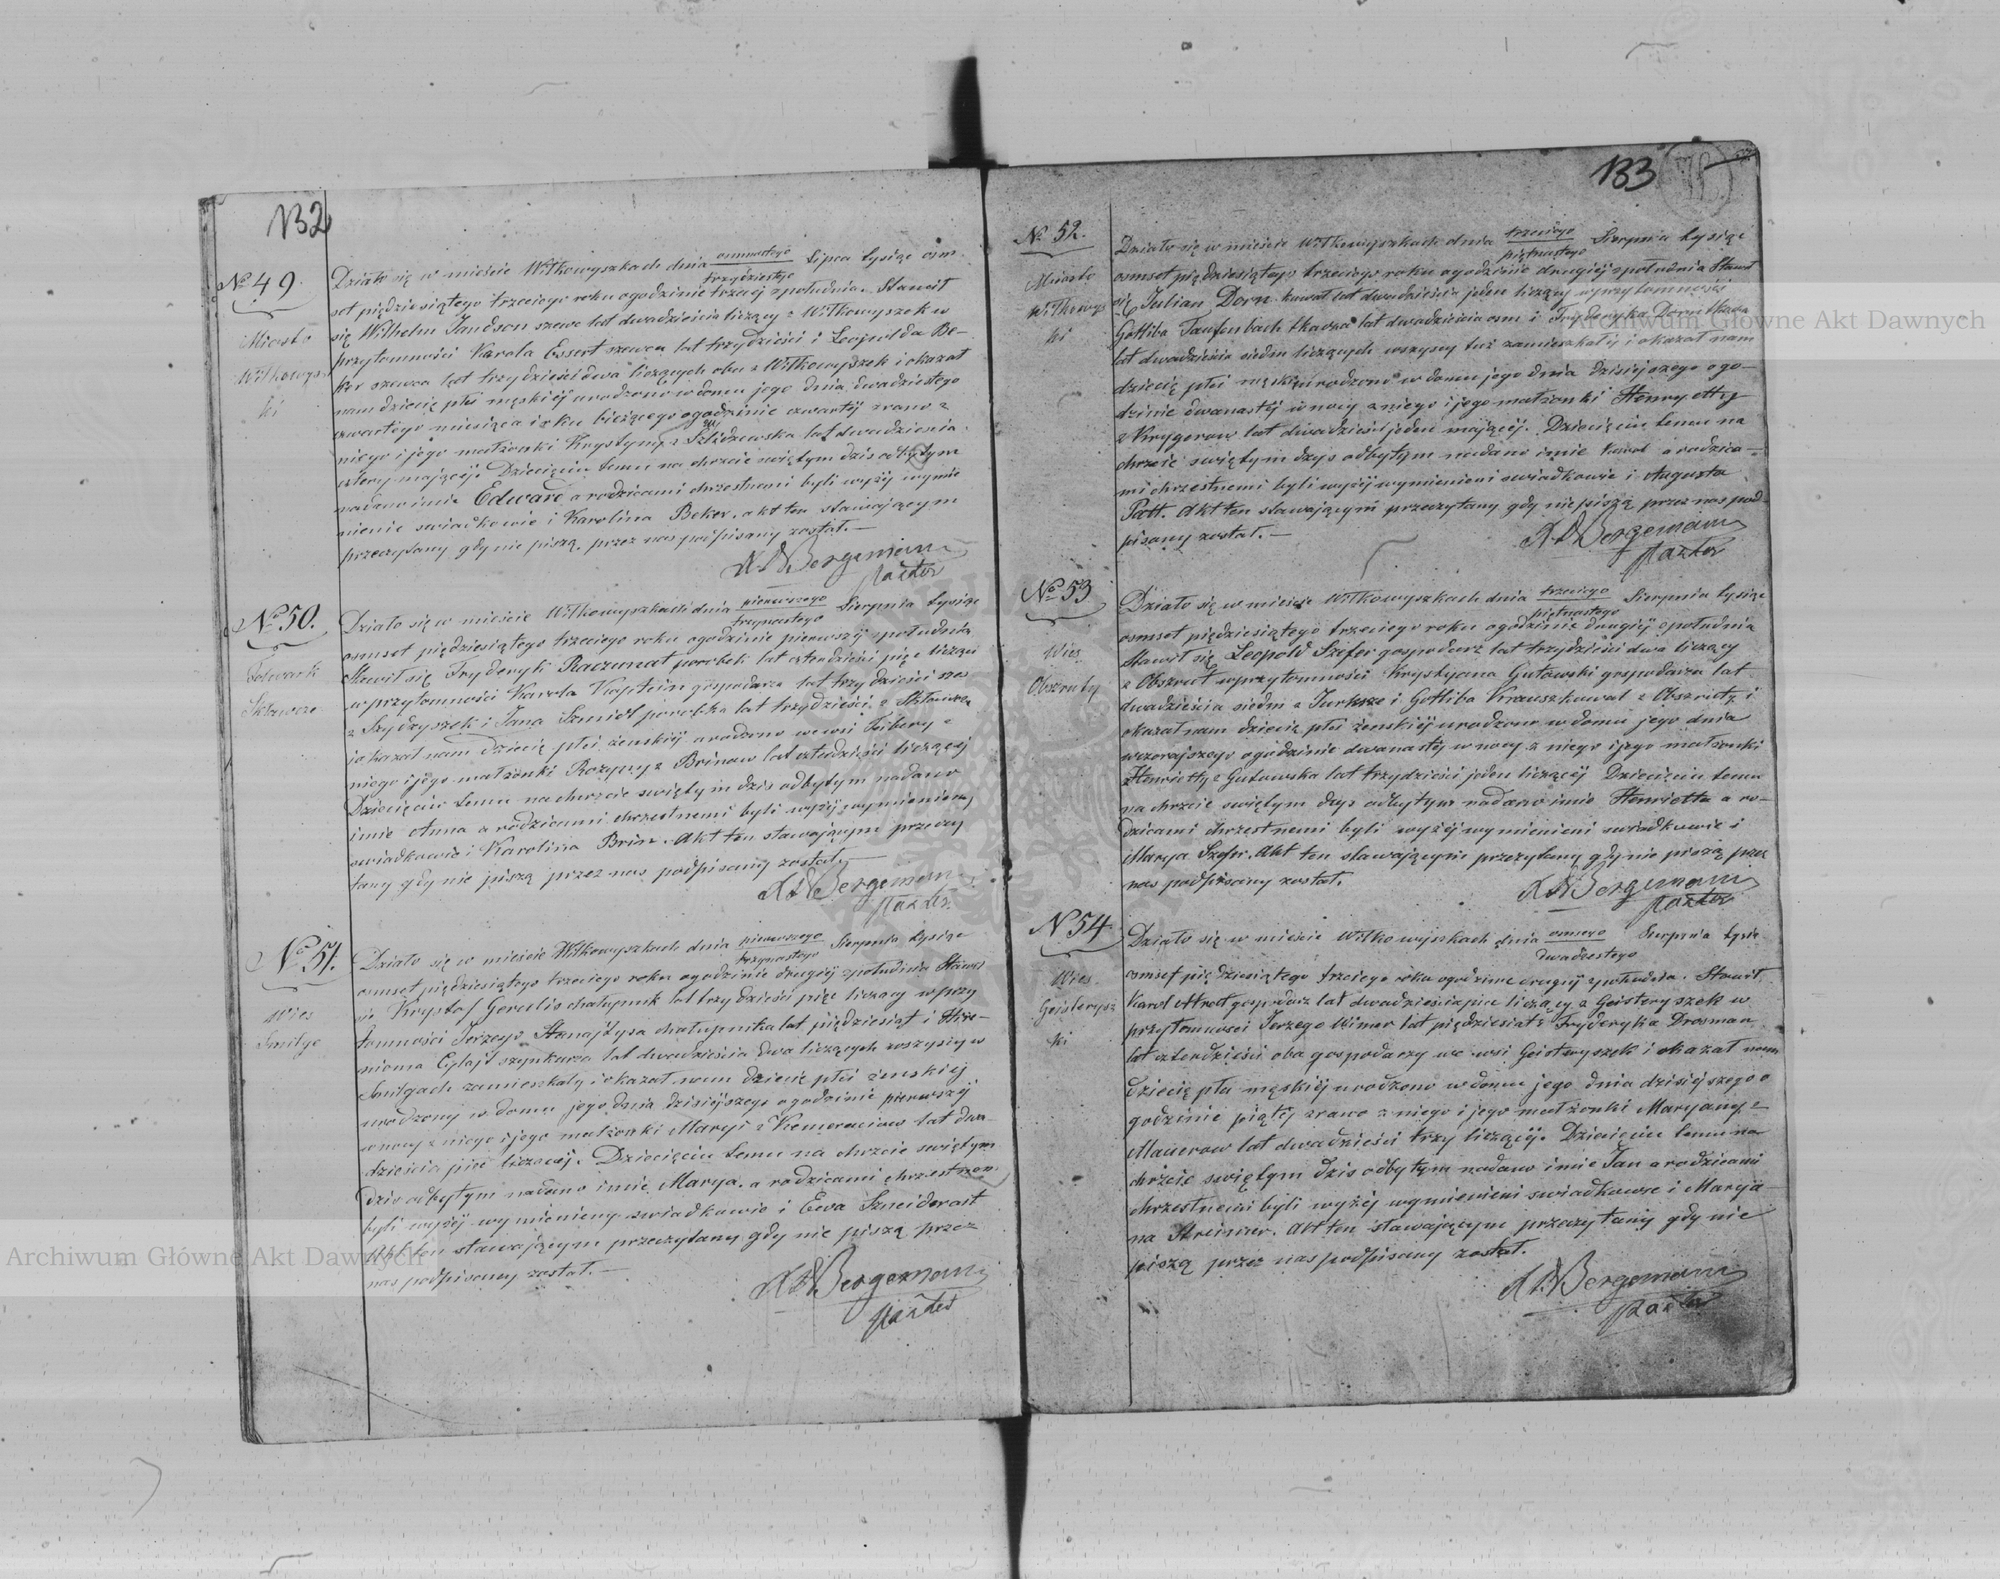 132
№ 49.
Miasto
Wiłkowyszki
Działo się w mieście Wiłkowyszkach dnia osmnastego / trzydziestego Lipca tysiąc osm
set pięćdziesiątego trzeciego roku o godzinie trzeciej z południa. Stawił
się Wilhelm Jandson szewc lat dwadzieścia liczący z Wiłkowyszek w
przytomności Karola Essert szewca lat trzydzieści i Leopolda Be-
ker szewca lat trzydzieści dwa liczących obu z Wiłkowyszek i okazał
nam dziecię płci męskiéj urodzone w domu jego dnia dwudziestego
czwartego miesiąca i roku bieżącego o godzinie czwartéj zrana z
niego i jego małżonki Krystyny z lat dwadzieścia
cztery mającéj. Dziecięciu temu na chrzcie świętym dziś odbytym
nadano imie Edward a rodzicami chrzestnemi byli wyżéj wymie
nienie świadkowie i Karolina Beker. Akt ten stawającym
przeczytany gdy nie piszą, przez nas podpisany został. —
Bergemann
Pastor
№ 50.
Folwark
Działo się w mieście Wiłkowyszkach dnia pierwszego / trzynastego Sierpnia tysiąc
osmset pięćdziesiątego trzeciego roku o godzinie pierwszéj z południa
Stawił się Fryderyk Raczunat parobek lat czterdzieści pięć liczący
w przytomności Karola gospodarza lat trzydzieści
z i Jana Szmidt parobka lat trzydzieści z
i okazał nam dziecię płci żeńskiéj urodzone we wsi z
niego i jego małżonki Rozyny z Brinow lat czterdzieści liczącéj
Dziecięciu temu na chrzcie świętym dziś odbytym nadano
imie Anna a rodzicami chrzestnemi byli wyżéj wymienieni
świadkowie i Karolina Brin. Akt ten stawającym przeczy
tany gdy nie piszą przez nas podpisany został. —
Bergemann
Pastor
№ 51.
Wieś
Smilge
Działo się w mieście Wiłkowyszkach dnia pierwszego / trzynastego Sierpnia tysiąc
osmset pięćdziesiątego trzeciego roku o godzinie drugiéj z południa Stawił
się Krysztof Gerulis chałupnik lat trzydzieści pięć liczący w przy
tomności Jerzego chałupnika lat pięćdziesiąt i
szynkarza lat dwadzieścia dwa liczących wszyscy w
Smilgach zamieszkały i okazał nam dziecię płci żeńskiej
urodzony w domu jego dnia dzisiéjszego o godzinie pierwszéj
w nocy z niego i jego małżonki Maryi z lat dwa-
dzieścia pięć liczącéj. Dziecięciu temu na chrzcie świętym
dziś odbytym nadano imie Marya. a rodzicami chrzestnemi
byli wyżéj wymienieny świadkowie i Ewa Szneiderait
Akt ten stawającym przeczytany gdy nie piszą przez
nas podpisany został. —
Bergemann
Pastor
133
№ 52.
Miasto
Wiłkowysz
ki
Działo się w mieście Wiłkowyszkach dnia trzeciego / piętnastego Sierpnia tysiąc
osmset pięćdziesiątego trzeciego roku o godzinie drugiéj z południa Stawił
się Julian Dorn kawal lat dwadzieścia jeden liczący w przytomności
Gottliba Taufenbach tkacza lat dwadzieścia osm i Fryderyka Dorn tkacza
lat dwadzieścia siedm liczących wszyscy tuż zamieszkały i okazał nam
dziecię płci męskiéj urodzone w domu jego dnia dzisiejszego o go-
dzinie dwanastéj w nocy z niego i jego małżonki Henryetty
z Krygerow lat dwadzieścia jeden mającéj. Dziecięciu temu na
chrzcie świętym dzyś odbytym nadano imie Karol a rodzica-
mi chrzestnemi byli wyżéj wymienieni świadkowie i Augusta
Patt. Akt ten stawającym przeczytany gdy nie piszą przez nas pod-
pisany został. —
Bergemann
Pastor
№ 53
Wieś
Obszruty
Działo się w mieście Wiłkowyszkach dnia trzeciego / piętnastego Sierpnia tysiąc
osmset pięćdziesiątego trzeciego roku o godzinie drugiéj z południa
Stawił się Leopold Szefer gospodarz lat trzydzieści dwa liczący
z Obszrut w przytomności Krystyana Gutowski gospodarza lat
dwadzieścia siedm z i Gottliba z Obszrut, i
okazał nam dziecię płci żeńskiéj urodzone w domu jego dnia
wczorajszego o godzinie dwanastéj w nocy z niego i jego małżonki
Henrietty z Gutowska lat trzydzieści jeden liczącéj Dziecięciu temu
na chrzcie świętym dzyś odbytym nadano imie Henrietta a ro-
dzicami chrzestnemi byli wyżéj wymienieni świadkowie i
Marya Szefer. Akt ten stawającymi przeczytany gdy nie piszą przez
nas podpisany został.
Bergemann
Pastor
№ 54
Wieś
Geisterysz
ki
Działo się w mieście Wiłkowyszkach dnia osmego / dwudziestego Sierpnia tysiąc
osmset pięćdziesiątego trzeciego roku o godzinie drugiéj z południa. Stawił
Karol gospodarz lat dwadzieścia pięć liczący z Geisteryszek w
przytomności Jerzego Wimer lat pięćdziesiąt i Fryderyka Drosman
lat czterdzieści oba gospodarzy we wsi Geisteryszek i okazał nam
dziecię płci męskiéj urodzone w domu jego dnia dzisiéjszego o
godzinie piątéj zrana z niego i jego małżonki Maryany z
Mauerow lat dwadzieści trzy liczącéj. Dziecięciu temu na
chrzcie świętym dziś odbytym nadano imie Jan a rodzicami
chrzestnemi byli wyżéj wymienieni świadkowie i Marya-
na Streimer. Akt ten stawającym przeczytany gdy nie
piszą przez nas podpisany został.
Bergemann
Pastor
Archiwum Główne Akt Dawnych
Archiwum Główne Akt Dawnych